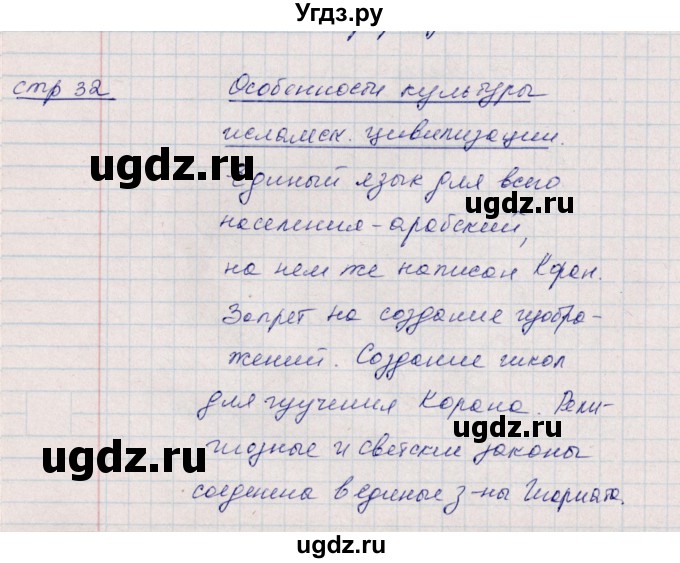 Угдз.ру
стр 32
Особенности культуры
исламск. цивилизации.
ugdz.ru
Единый язык для всего
ugdz.ru
населения - арабский,
на нем же написан Коран.
Запрет на создание изобра-
жений. Создание школ
для изучения Корана. Рели-
ugdz.ru
ugdz.ru
гиозные и светские законы
соеденена в единые з-ны Шариата.
ugdz.ru